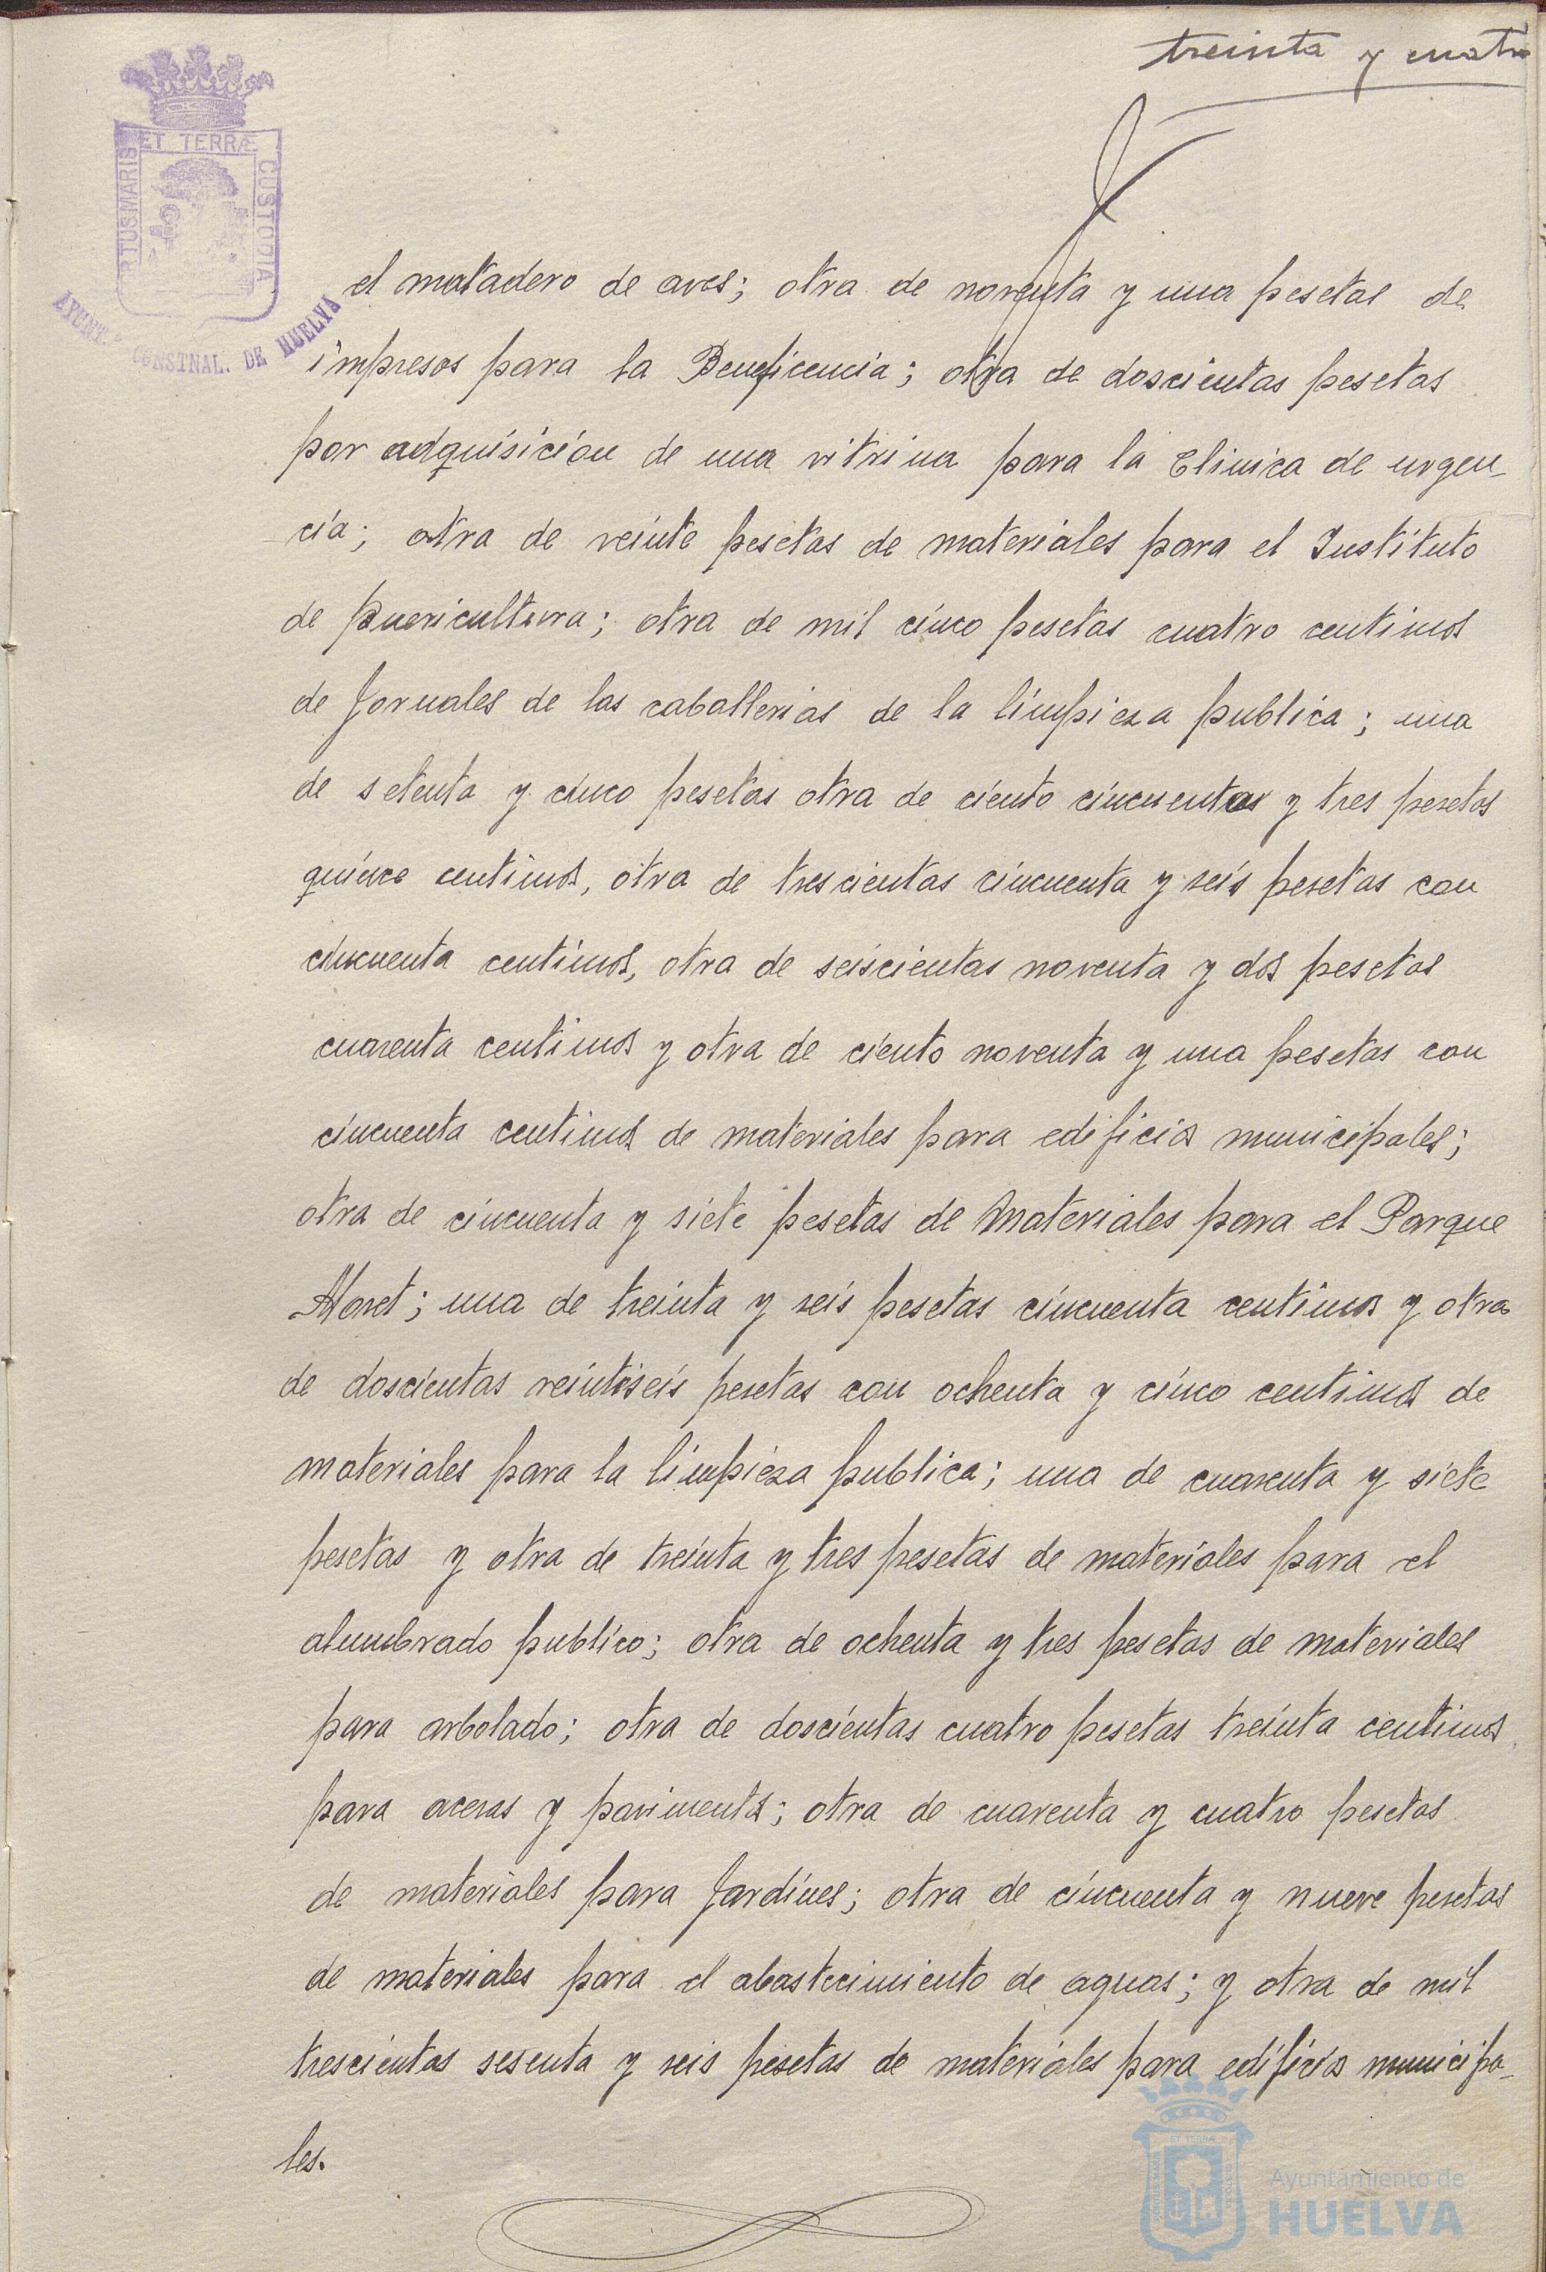 treinta y cuatro
ET TERRÆ
PORTUS MARIS
CUSTODIA
AYUNT.º CONSTNAL. DE HUELVA
el matadero de aves; otra de noventa y una pesetas de
impresos para la Beneficencia; otra de doscientas pesetas
por adquisicion de una vitrina para la Clinica de urgen-
cia; otra de veinte pesetas de materiales para el Instituto
de Puericultura; otra de mil cinco pesetas cuatro centimos
de Jornales de las caballerias de la limpieza publica; una
de setenta y cinco pesetas otra de ciento cincuenta y tres pesetas
quince centimos, otra de trescientas cincuenta y seis pesetas con
cincuenta centimos, otra de seiscientas noventa y dos pesetas
cuarenta centimos y otra de ciento noventa y una pesetas con
cincuenta centimos de materiales para edificios municipales;
otra de cincuenta y siete pesetas de Materiales para el Parque
Moret; una de treinta y seis pesetas cincuenta centimos y otra
de doscientas veintiseis pesetas con ochenta y cinco centimos de
materiales para la limpieza publica; una de cuarenta y siete
pesetas y otra de treinta y tres pesetas de materiales para el
alumbrado publico; otra de ochenta y tres pesetas de materiales
para arbolado; otra de doscientas cuatro pesetas treinta centimos
para aceras y pavimentos; otra de cuarenta y cuatro pesetas
de materiales para Jardines; otra de cincuenta y nueve pesetas
de materiales para el abastecimiento de aguas; y otra de mil
trescientas sesenta y seis pesetas de materiales para edificios municipa-
les.
Ayuntamiento de
HUELVA